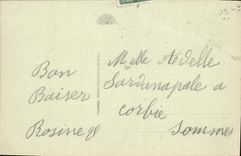 Bon
Baiser
Rosine
Melle Odelle
Sardanapale a
Corbie
Somme